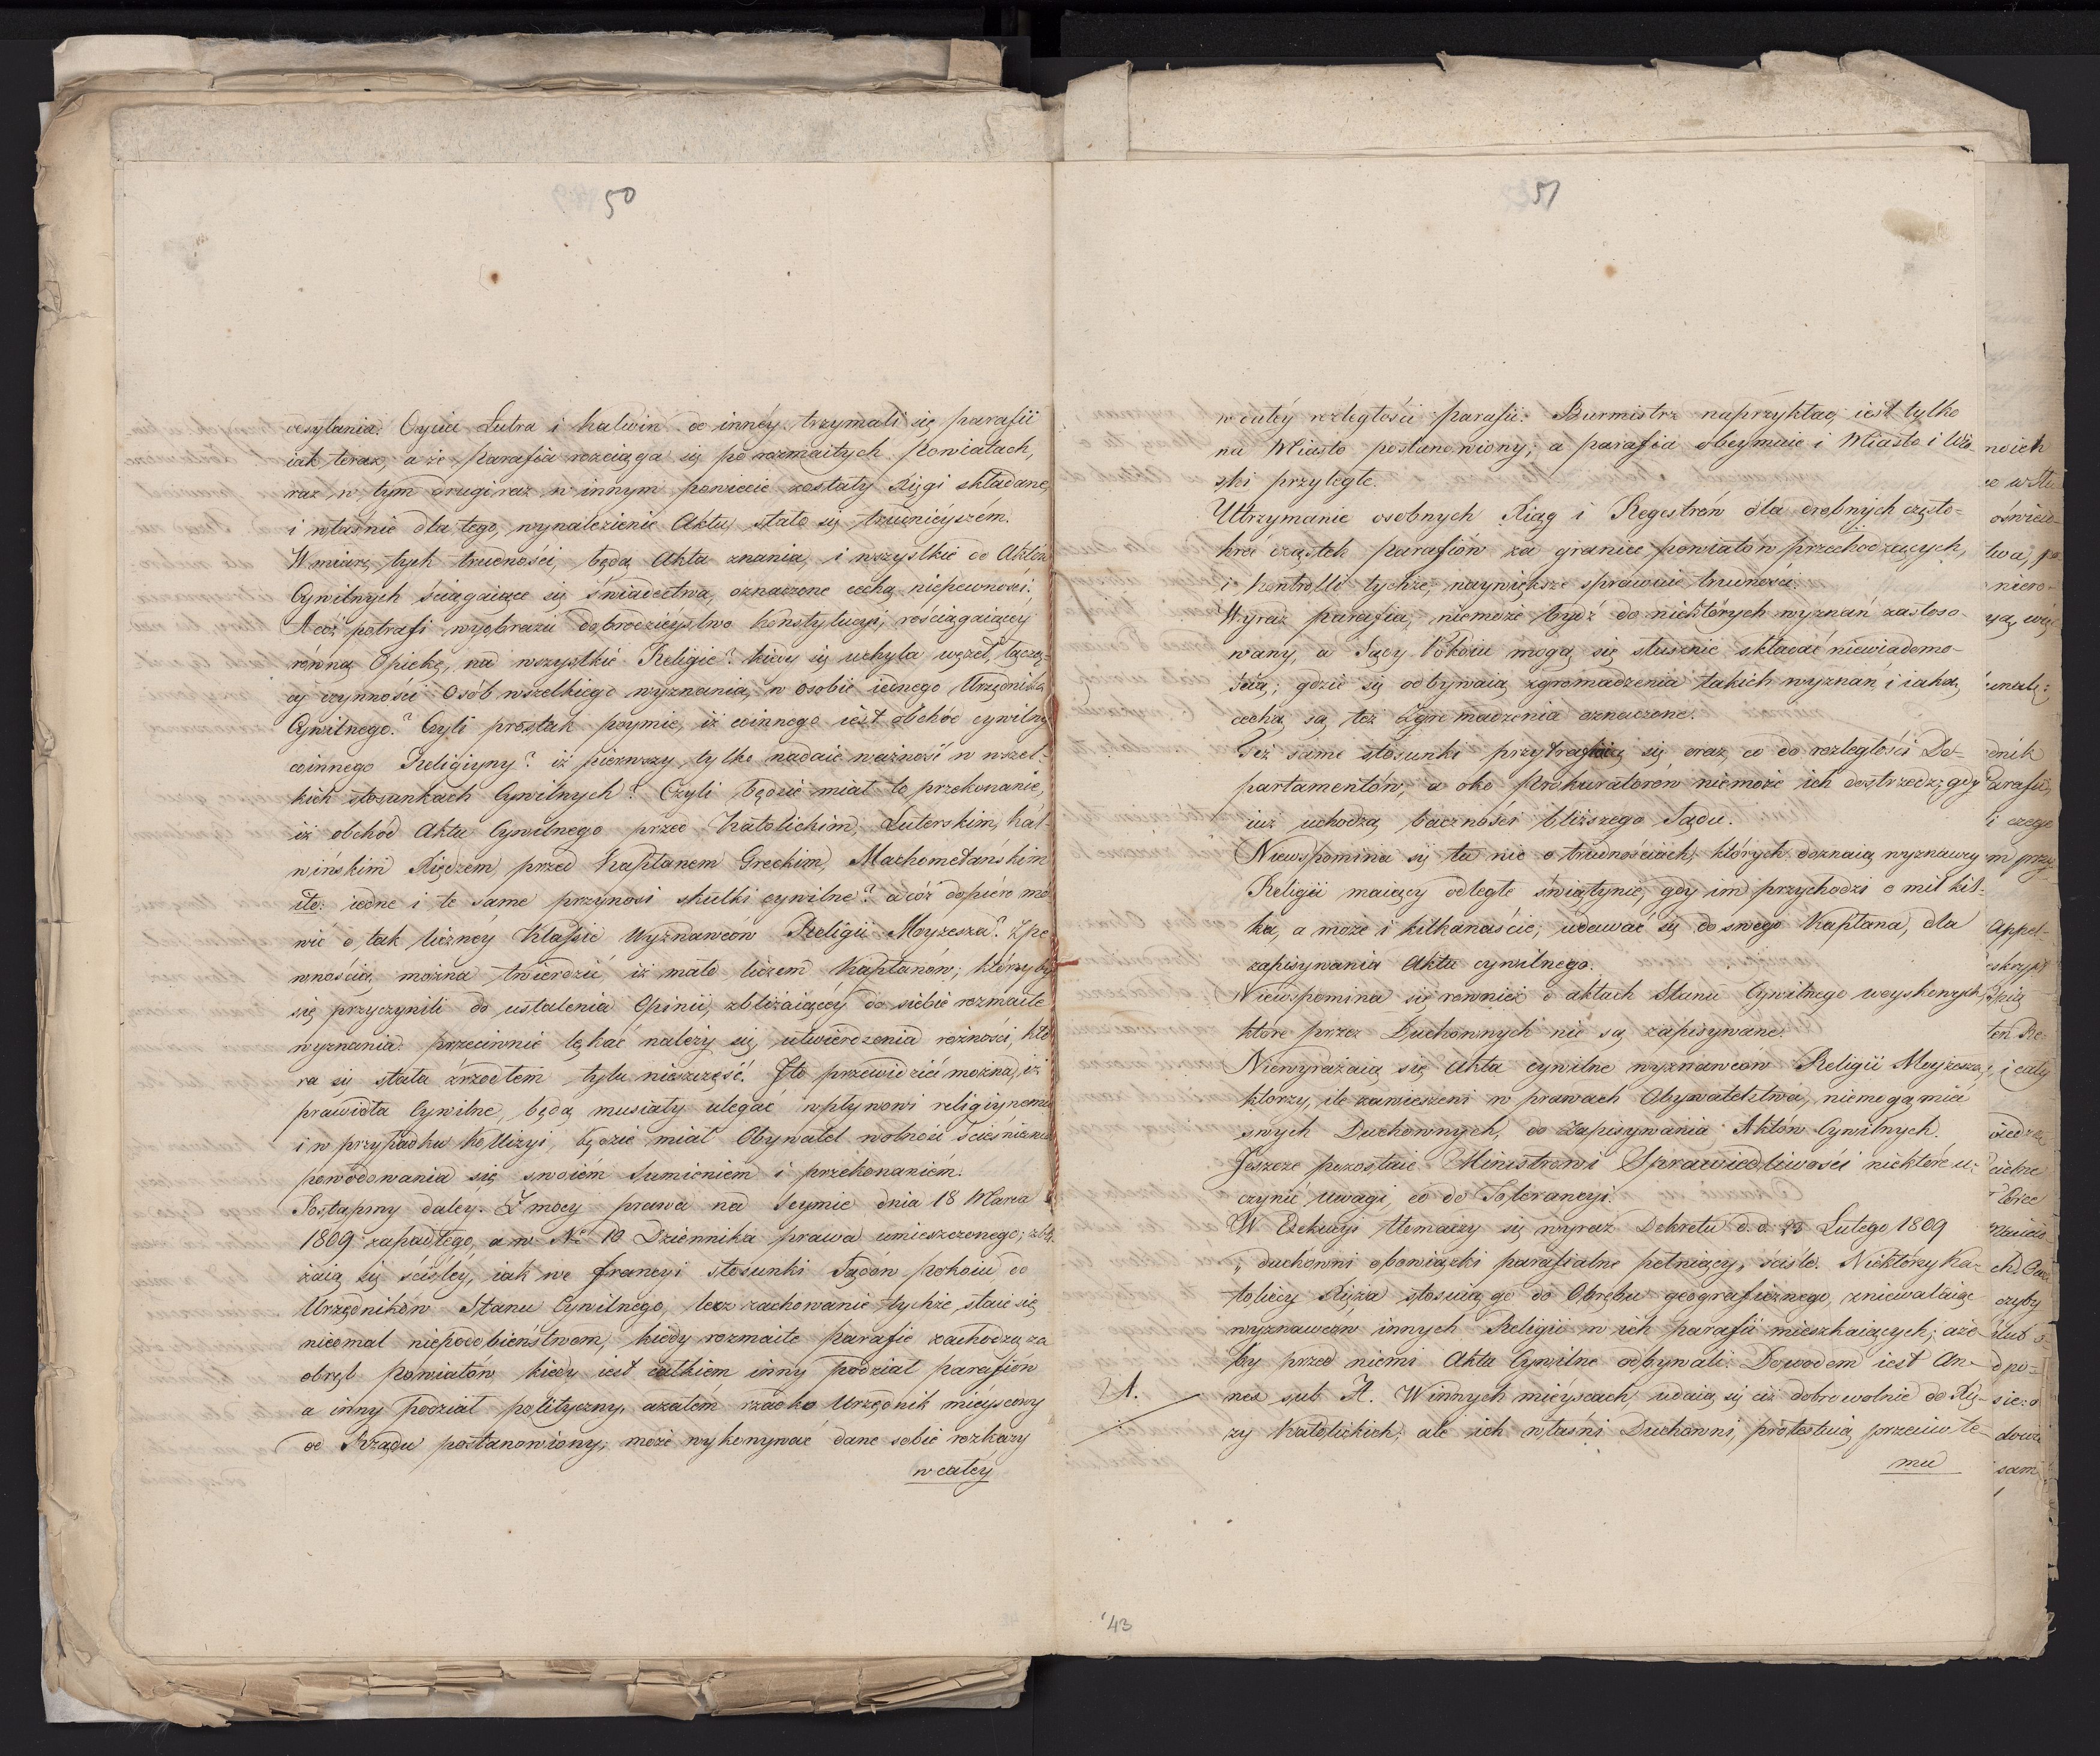 50
odsyłania. Oycicc Lutra i Kalwin do innéy trzymali się parafii
iak teraz, a że parafia rozciąga się po rozmaitych Powiatach,
raz w tym drugi raz w innym powiecie zostały Xięgi składane,
i właśnie dla tego, wynalezienie Aktu, stało się trudnieyszém.
W miarę tych trudności, będą Akta znania, i wszystkie do Aktów
Cywilnych ściągaiące się świadectwa, oznaczone cechą niepewności.
A coż potrafi wyobrazić dobrodzieystwo Konstytucyi, rościągaiącéy
równą Opiekę, nad wszystkie Religie? kiedy się uchyla węzeł, łączą-
cy czynności Osób wszelkiego wyznania, w osobie iednego Urzędnika
Cywilnego? Czyli prostak poymie, iż co innego iest obchód cywilny
co innego Religiyny? iż pierwszy, tylko nadaie ważność w wszel-
kich stosunkach Cywilnych? Czyli będzie miał to przekonanie,
iż obchód Aktu Cywilnego przed Katolickim, Luterskim, Kal-
wińskim Xiędzem, przed Kapłanem Greckim, Machometańskim
itd: iedne i te same przynosi skutki cywilne? a cóż dopiéro mó-
wić o tak liczney Klassie Wyznawców Religii Moyzesza? Z pe-
wnością można twierdzić iż mało liczem Kapłanów, którzyby
się przyczynili do ustalenia Opinii, zbliżaiącéy do siebie rozmaite
wyznania. przeciwnie lękać należy się, utwierdzenia różności, któ-
ra się stała źrzodłem tylu nieszczęść. Ito przewidzieć można, iż
prawidła Cywilne, będą musiały ulegać wpływowi religiynemu
i w przypadku Kollizyi, będzie miał Obywatel wolność ścieśnioną
powodowania się swoiém sumieniem i przekonaniém.
Postąpmy daléy. Z mocy prawa na Seymie dnia 18 Marca
1809 zapadłego, a w No 10 Dziennika prawa umieszczonego; zbli-
żaią się ściśléy, iak we Francyi stosunki Sądów pokoiu do
Urzędników Stanu Cywilnego, lecz zachowanie tychże, staie się
nieomal niepodobieństwem, kiedy rozmaite parafie zachodzą za
obręb powiatów kiedy iest całkiem inny podział parafiów
a inny podział polityczny, a zatém rzadko Urzędnik miéyscowy
od Rządu postanowiony, może wykonywać dane sobie rozkazy
w całéy
51
w całéy rozległości parafii. Burmistrz naprzykład, iest tylko
na Miasto postanowiony; a parafia obeymuie i Miasto i Wio-
ski przyległe.
Utrzymanie osobnych Xiąg i Regestrów dla drobnych często-
kroć cząstek parafiów za granice powiatów przechodzących,
i Kontrolli tychże, naywiększe sprawuie trudności.
Wyraz parafia, niemoże bydź do niektórych wyznań zastoso-
wany, a Sądy Pokoiu mogą się słusznie składać niewiadomo-
ścią; gdzie się odbywaią zgromadzenia takich wyznań, i iaką
cechą są też zgromadzenia oznaczone.
Też same stosunki przytrafiaią się oraz co do rozległości De-
partamentów, a oko Prokuratorów niemoże ich dostrzedz, gdy
iuż uchodzą baczności bliższego Sądu.
Niewspomina się tu nic o trudnościach, których doznaią wyznawcy
Religii maiący odległe świątynie, gdy im przychodzi o mil kil-
ka, a może i kilkanaście, udawać się do swego Kapłana, dla
zapisywania Aktu cywilnego.
Niewspomina się również o aktach Stanu Cywilnego woyskowych,
które przez Duchownych nie są zapisywane.
Niewyrażaią się Akta cywilne wyznawców Religii Moyzesza,
którzy, ile zawieszeni w prawach Obywatelstwa, niemogą mieć
swych Duchownych, do zapisywania Aktów Cywilnych.
Jeszcze pozostaie Ministrowi Sprawiedliwości niektóre u-
czynić uwagi, co do Tolerancyi.
W Exekucyi tłemaczy się wyraz Dekretu d. d. 23 Lutego 1809
„duchowni obowiązki parafialne pełniący, ściśle. Niektórzy Ka-
toliccy Xięża stosuią go do Obrębu geograficznego, zniewalaiąc
wyznawców innych Religii w ich parafii mieszkaiących; aże-
by przed niemi Akta Cywilne odbywali. Dowodem iest An-
A.
nex sub A. W innych miéyscach, udaią się ciż dobrowolnie do Xię-
ży Katolickich; ale ich właśni Duchowni, protestuią przeciw te-
mu
43